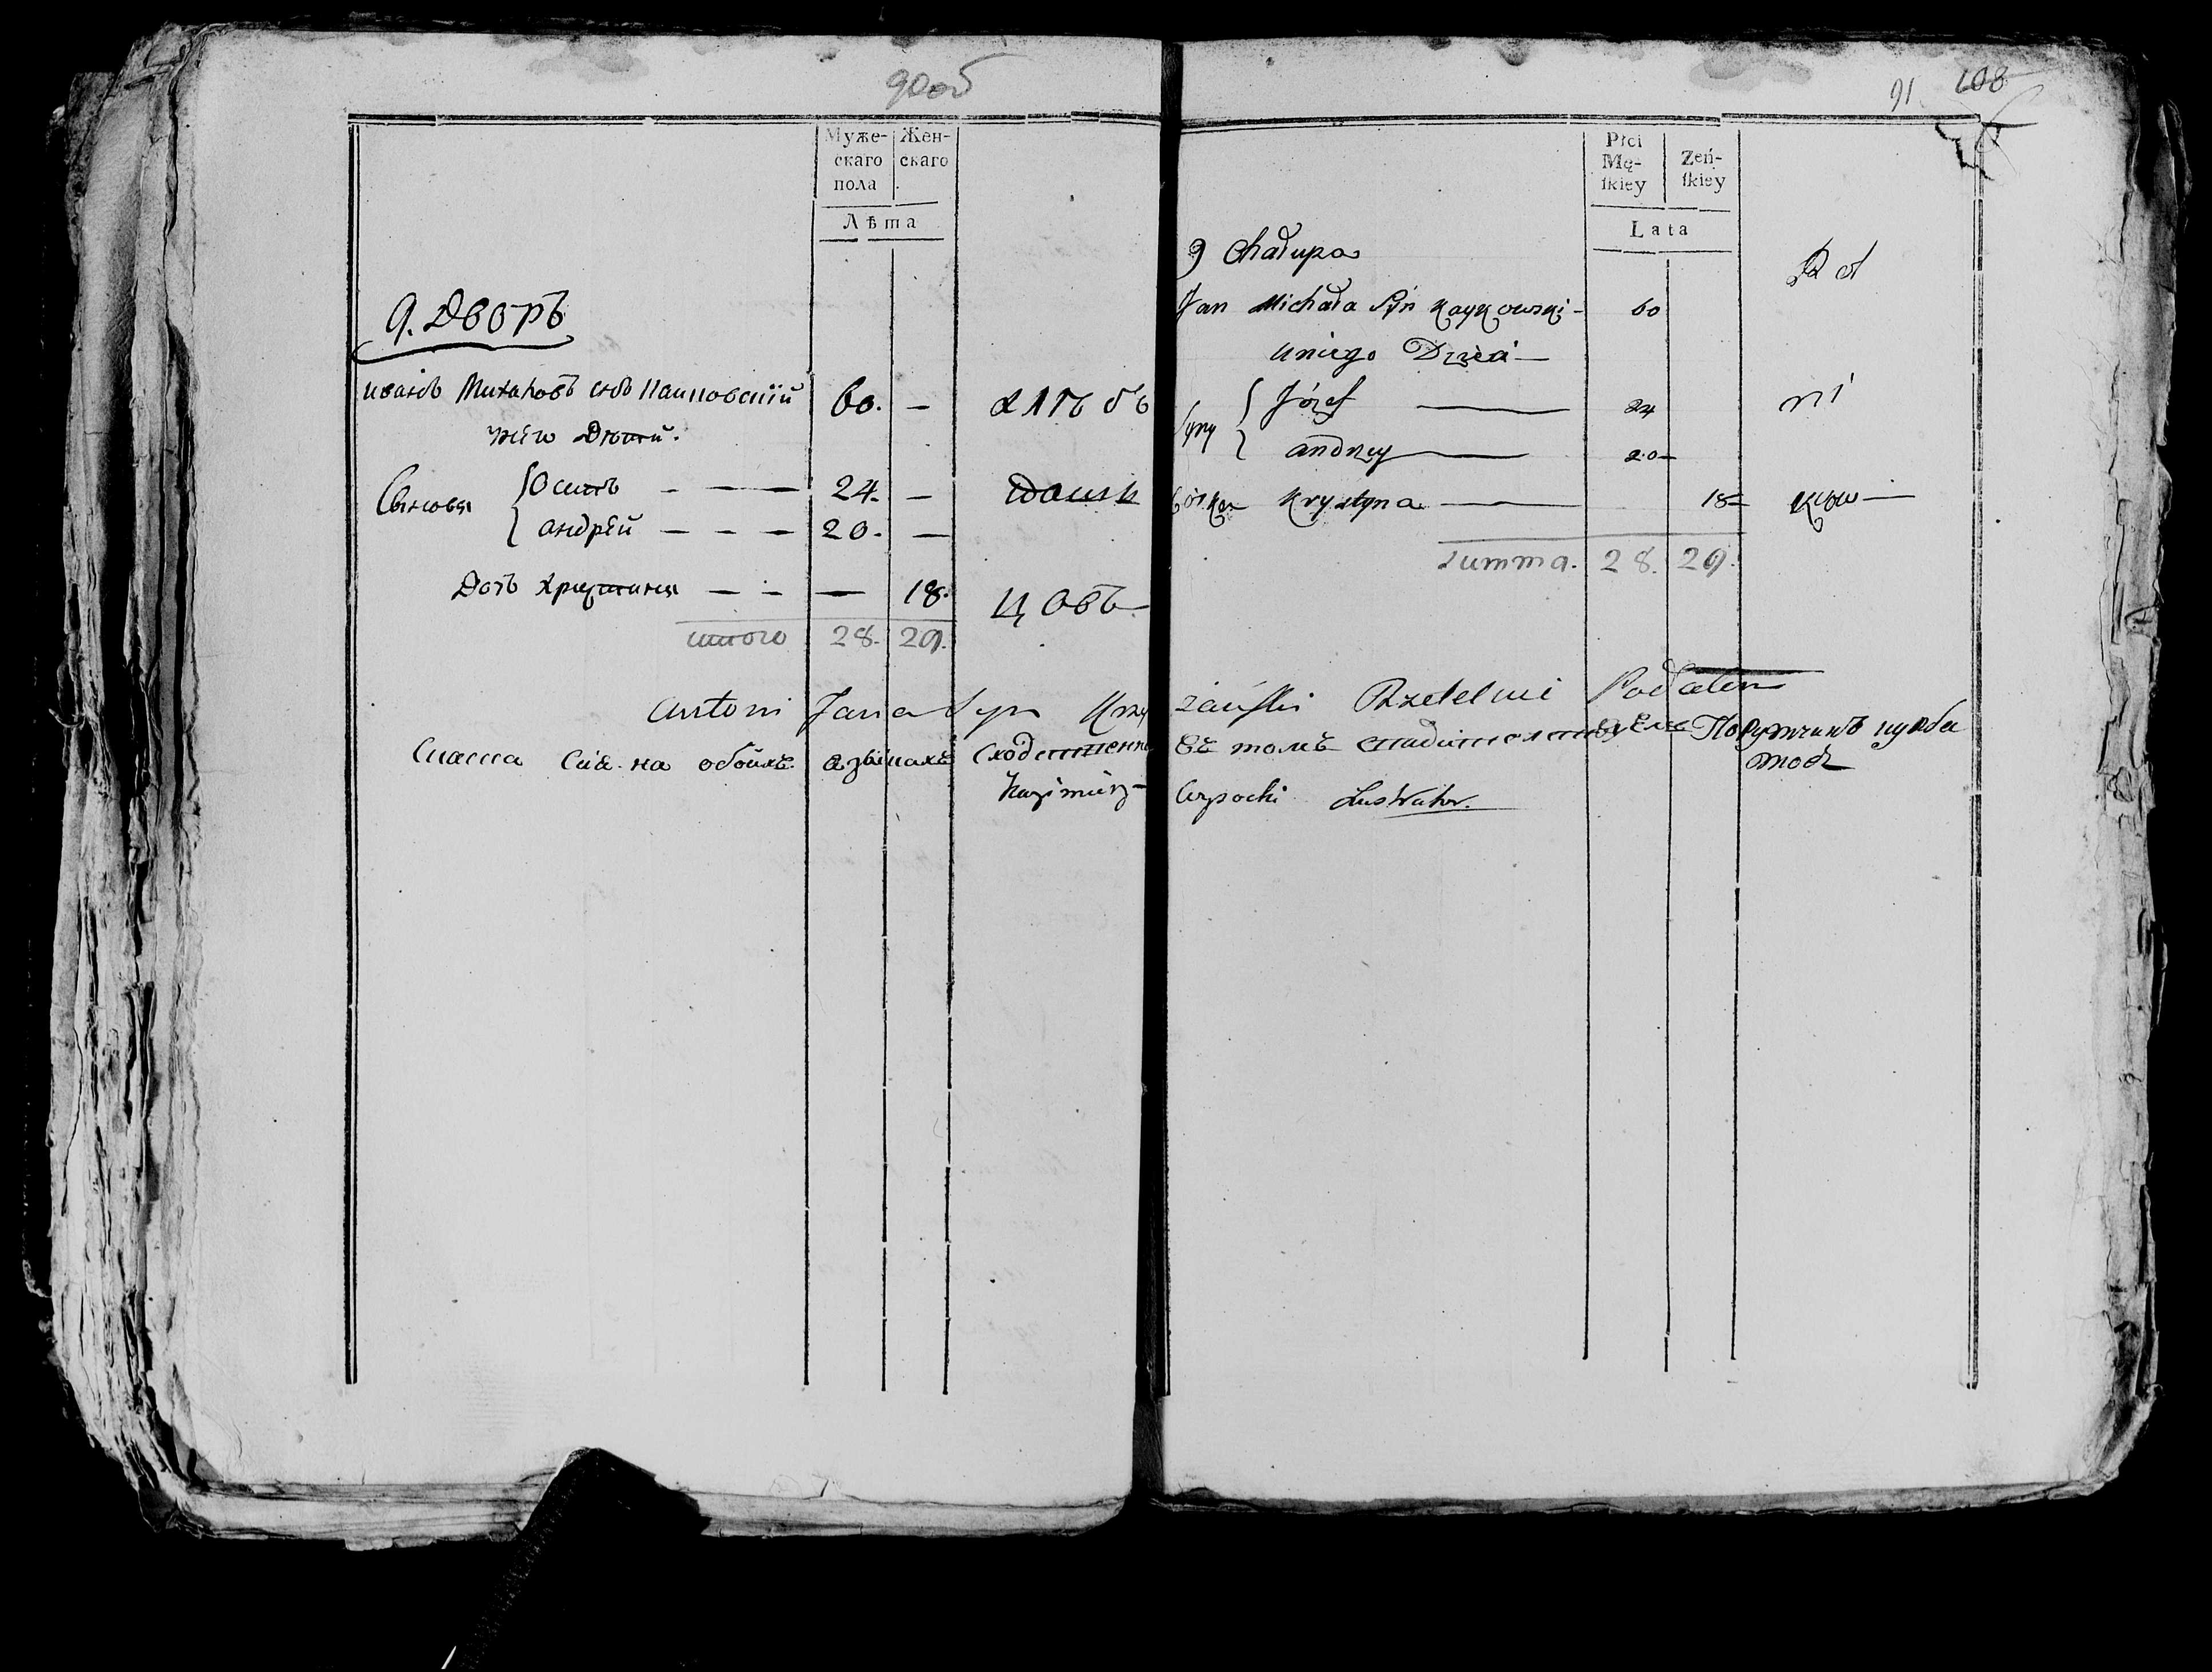 90об
Муже-
скаго
пола
Жен-
скаго
Лѣта
9. Дворъ
Иванъ Михаловъ снъ Каиковскiй 60. —
у него Дѣти.
хлѣбъ
Сыновья Осипъ — — — 24. —
андрѣй — — — 20. —
Дочъ Христина — — — 18.
цовъ
итого 28. 29.
91 108
Płci
Mę-
ſkiey
Zeń-
ſkiey
Lata
9 Chałupa
Rol
Jan Michała Syn Kaykowski - 60
u niego Dzieci —
Syny Józef — 24
ni
andrzey — 20
Córka Krystyna — 18
ków —
summa. 28. 29.
Antoni Jana Syn Krzy żański Rzetelnie Podałem
Скаска Сiя на обоихъ языкахъ Сходственна въ томъ Поручикъ
Kazimierz Wysocki Lustrator.